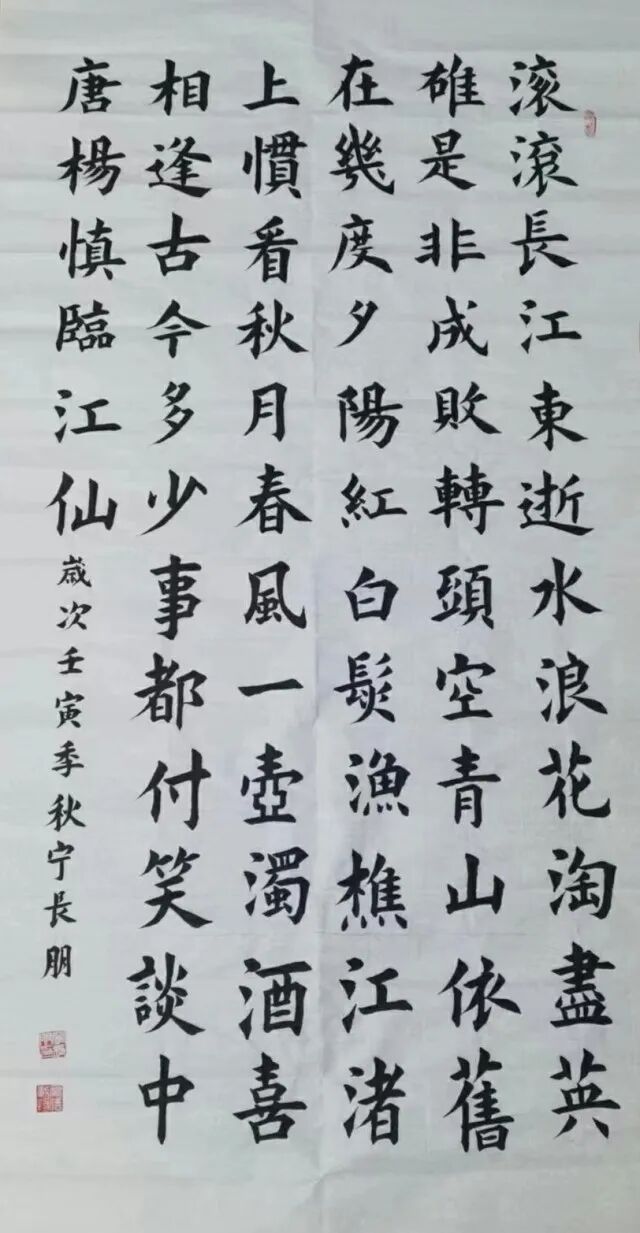 滚滾長江東逝水浪花淘盡英
雄是非成敗轉頭空青山依舊
在幾度夕陽紅白髮漁樵江渚
上慣看秋月春風一壺濁酒喜
相逢古今多少事都付笑談中
唐楊慎臨江仙
歲次壬寅季秋宁長朋